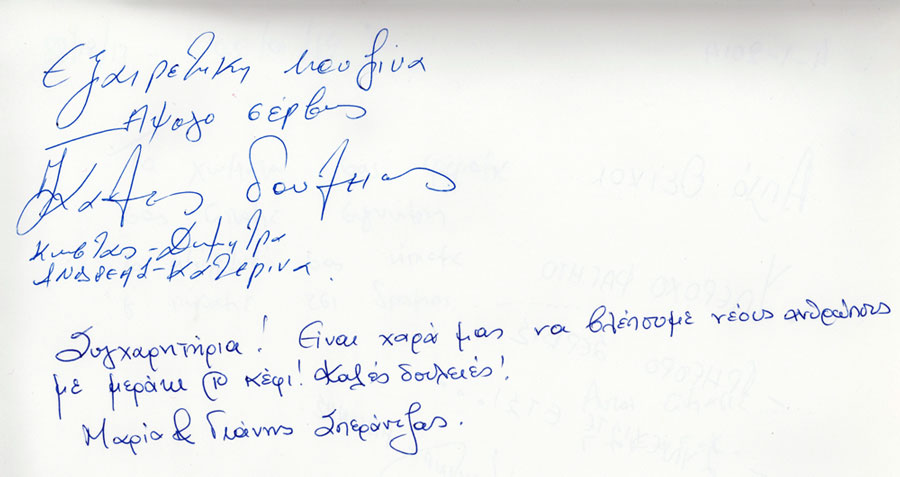 Εξαιρετικη κουζινα
Αψογο σέρβις
Καλες δουλιες
Κωστας - Δημητρα
ΑΝΔΡΕΑΣ - Κατερινα.
Συγχαρητήρια! Είναι χαρά μας να βλέπουμε νέους ανθρώπους
με μεράκι & κέφι! Καλές δουλειές!
Μαρία & Γιάννης Σπεράντζας.